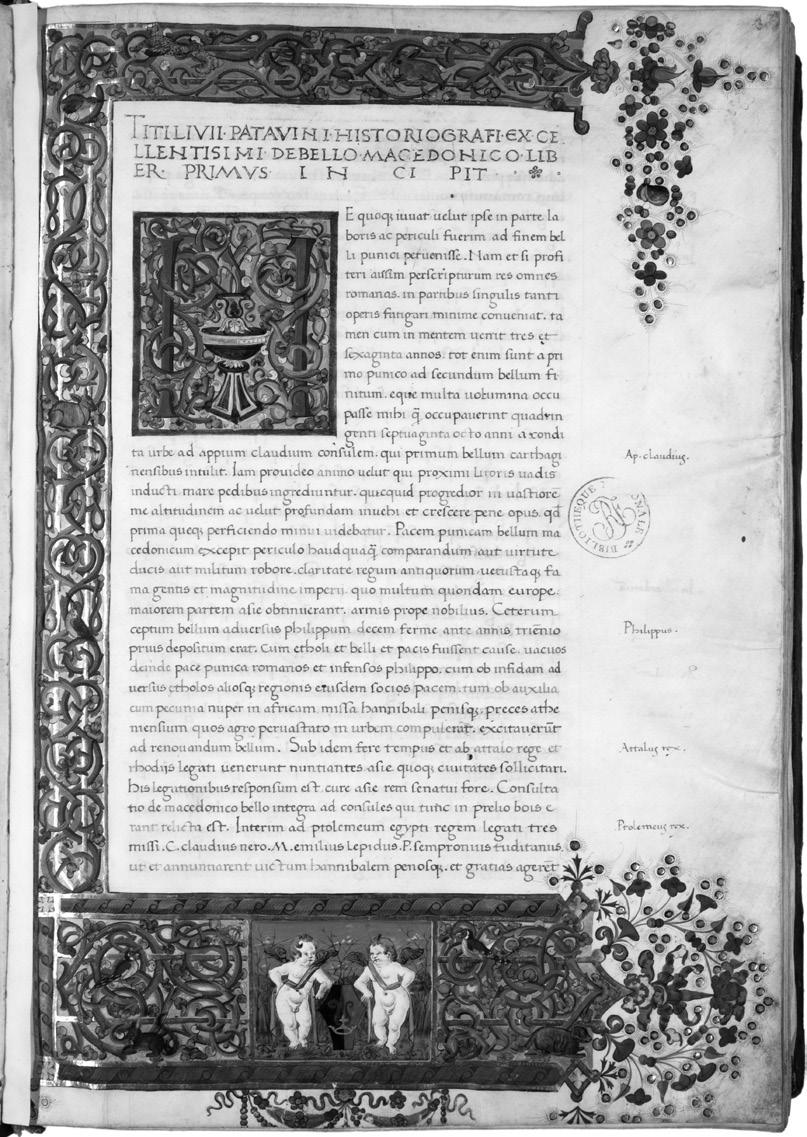 TITI·LIVII·PATAVINI·HISTORIOGRAFI·EX·CE
LLENTISIMI·DEBELLO·MACEDONICO·LIB
ER·PRIMVS·IN CI PIT·
M
E quoq; iuuat uelut ipse in parte la
boris ac periculi fuerim ad finem bel
li punici peruenisse. Nam et si profi
teri ausim perscripturum res omnes
romanas. in partibus singulis tanti
operis fatigari minime conueniat. ta
men cum in mentem uenit tres et
sexaginta annos. tot enim sunt a pri
mo punico ad secundum bellum fi
nitum. eque multa uolumina occu
passe mihi q̃ occupauerint quadrin
genti septuaginta octo anni a condi
ta urbe ad appium claudium consulem. qui primum bellum carthagi
nensibus intulit. Iam prouideo animo uelut qui proximi litoris uadis
inducti mare pedibus ingrediuntur. quicquid progredior in uastiore
me altitudinem ac uelut profundam inuehi et crescere pene opus. qđ
prima queq; perficiendo minui uidebatur. Pacem punicam bellum ma
cedonicum excepit periculo haudquaq̃ comparandum aut uirtute
ducis aut militum robore. claritate regum antiquorum uetustaq; fa
ma gentis et magnitudine imperii. quo multum quondam europe.
maiorem partem asie obtinuerant. armis prope nobilius. Ceterum
ceptum bellum aduersus philippum decem ferme ante annis triẽnio
prius depositum erat. Cum etholi et belli et pacis fuissent cause. uacuos
deinde pace punica romanos et infensos philippo. cum ob infidam ad
uersus etholos aliosq; regionis eiusdem socios pacem. tum ob auxilia
cum pecunia nuper in africam missa hannibali penisq;. preces athe
niensium quos agro peruastato in urbem compulerat. excitauerũt
ad renouandum bellum. Sub idem fere tempus et ab attalo rege et
rhodijs legati uenerunt nuntiantes asie quoq; ciuitates sollicitari.
His legationibus responsum est. cure asie rem senatui fore. Consulta
tio de macedonico bello integra ad consules qui tunc in prelio bois e
rant relicta est. Interim ad ptolemeum egypti regem legati tres
missi. C. claudius nero. M. emilius lepidus. P. sempronius tuditanus.
ut et annuntiarent uictum hannibalem penosq;. et gratias agerẽt
Ap. claudius.
Philippus.
Attalus rex.
Ptolemeus rex.
BIBLIOTHEQUE NATIONALE